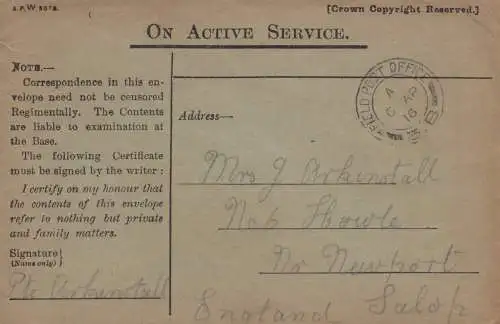 A.F.W 3078.
[Crown Copyright Reserved.]
ON ACTIVE SERVICE.
NOTE.—
Correspondence in this en-
velope need not be censored
Regimentally. The Contents
are liable to examination at
the Base.
The following Certificate
must be signed by the writer :
I certify on my honour that
the contents of this envelope
refer to nothing but private
and family matters.
Signature
(Name only)
Pte Arkinstall
FIELD POST OFFICE
A
6 AP
16
Address—
Mrs J Arkinstall
No 6 Howle
Nr Newport
England Salop